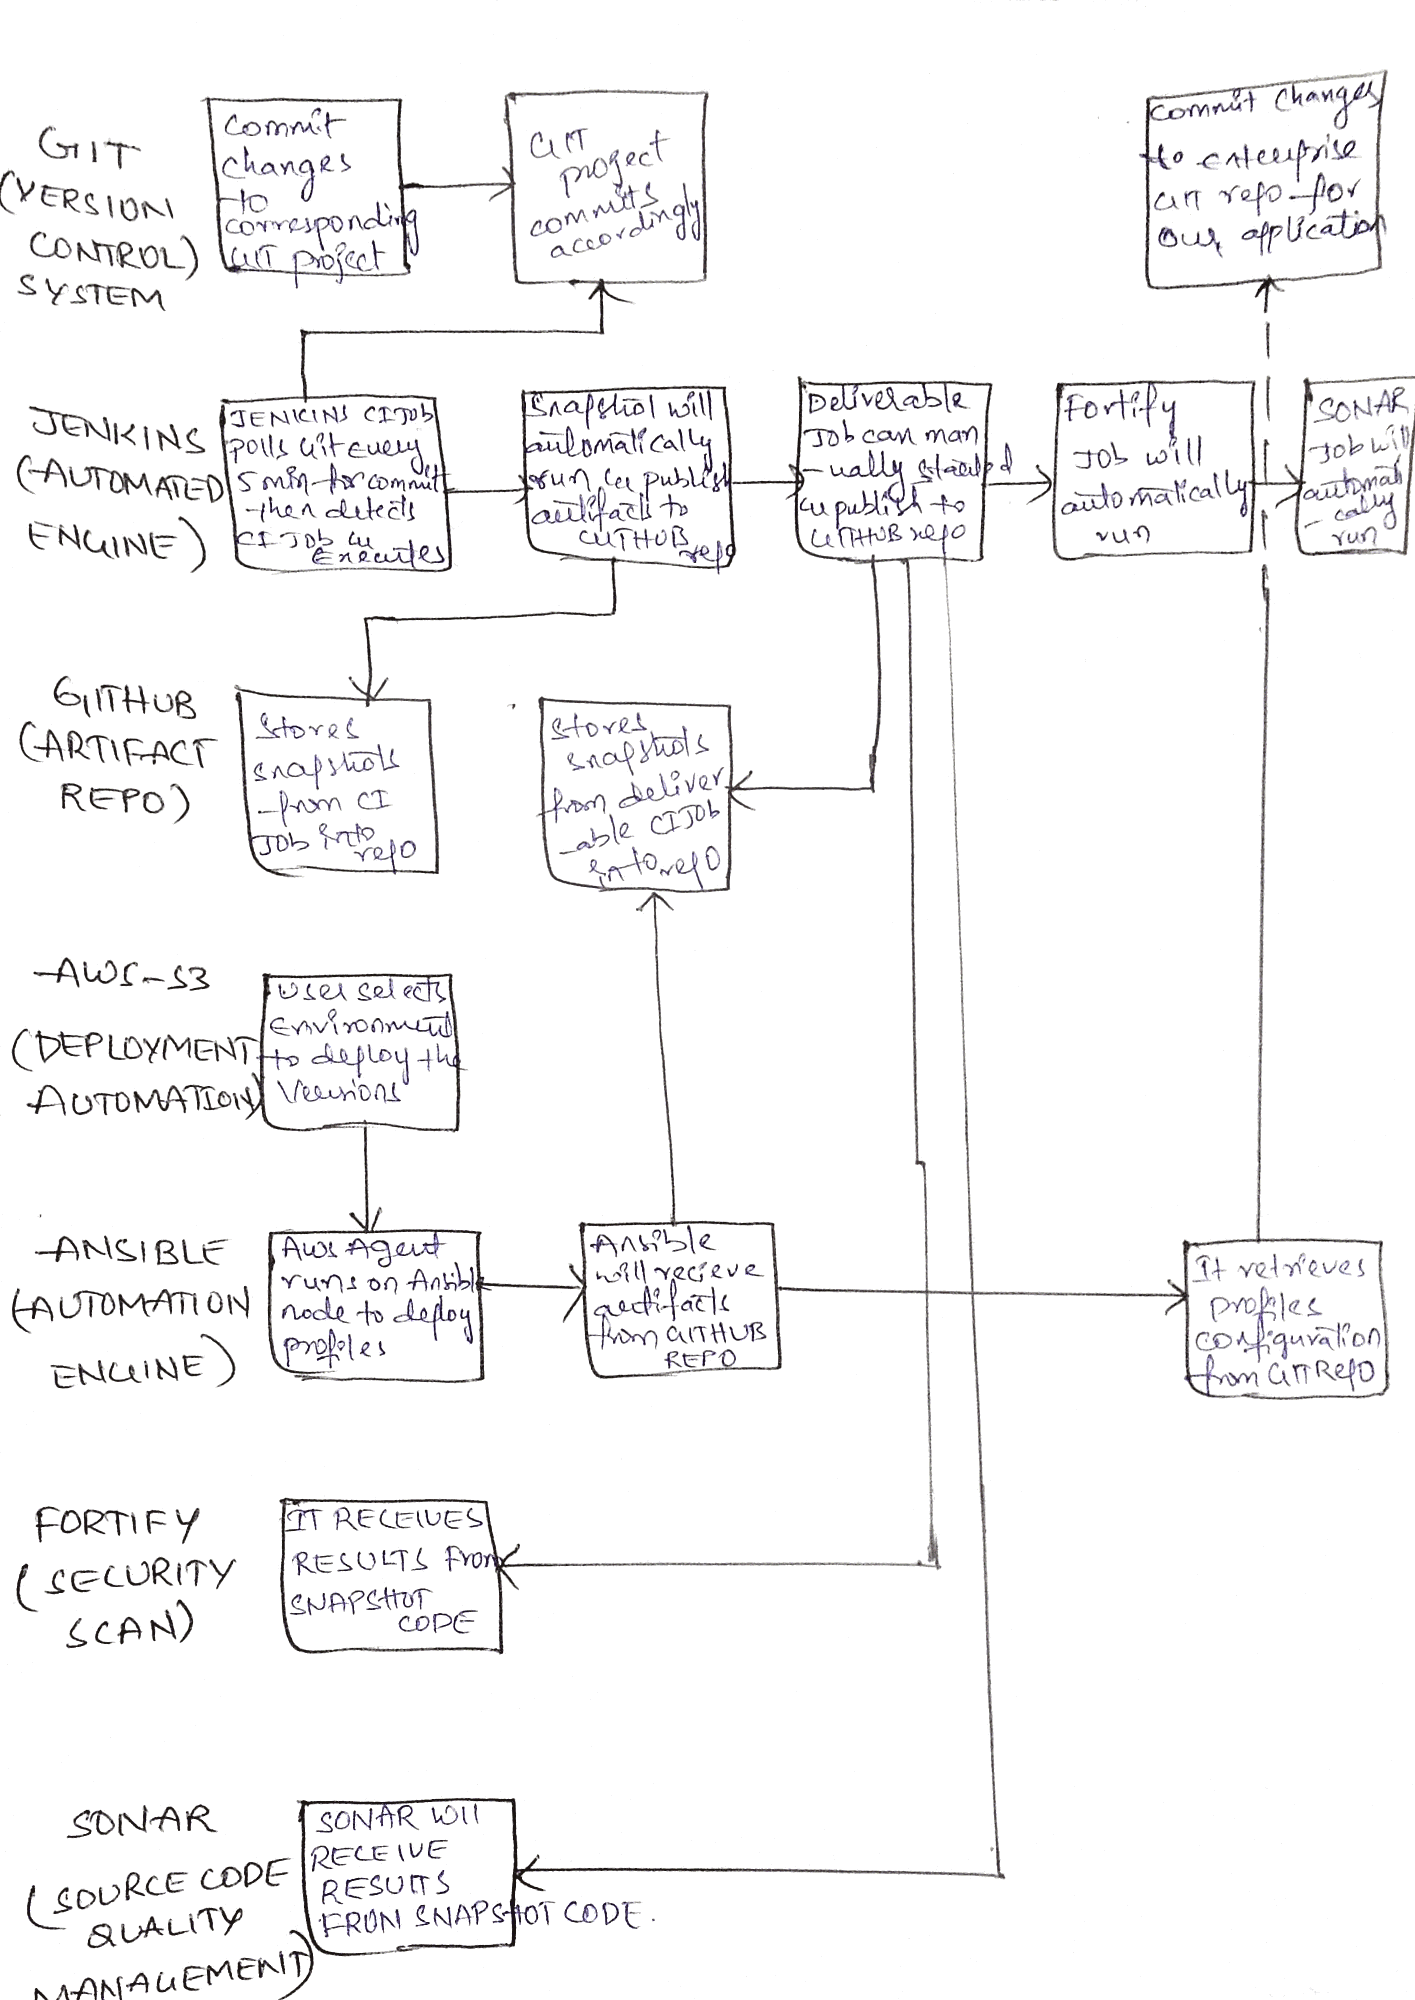 GIT
(VERSION
CONTROL)
SYSTEM
Commit
changes
to
corresponding
GIT project
GIT
project
commits
accordingly
Commit Changes
to enterprise
GIT repo for
our application
JENKINS
(AUTOMATED
ENGINE)
JENKINS CI JOB
polls Git every
5 min for commit
then detects
CI JOB &
Executes
Snapshot will
automatically
run & publish
artifacts to
GITHUB
repo
Deliverable
JOB can man
-ually started
& publish to
GITHUB repo
Fortify
JOB will
automatically
run
SONAR
JOB will
automati
-cally
run
GITHUB
(ARTIFACT
REPO)
Stores
snapshots
from CI
JOB into
repo
Stores
snapshots
from deliver
-able CI JOB
into repo
AWS-S3
(DEPLOYMENT
AUTOMATION)
User selects
Environment
to deploy the
Versions
ANSIBLE
(AUTOMATION
ENGINE)
AWS Agent
runs on Ansible
node to deploy
profiles
Ansible
will recieve
artifacts
from GITHUB
REPO
It retrieves
profiles
configuration
from GIT Repo
FORTIFY
(SECURITY
SCAN)
IT RECEIVES
RESULTS From
SNAPSHOT
CODE
SONAR
(SOURCE CODE
QUALITY
MANAGEMENT)
SONAR Will
RECEIVE
RESULTS
FROM SNAPSHOT CODE.